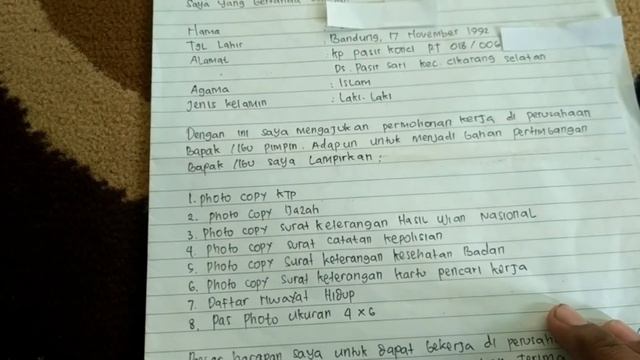 Saya yang bertanda
Nama
Tgl Lahir : Bandung, 17 November 1992
Alamat : kp pasir konci RT 018/006
Ds. Pasir sari kec. cikarang selatan
Agama : Islam
Jenis kelamin : Laki-Laki
Dengan ini saya mengajukan permohonan kerja di perusahaan
Bapak /Ibu pimpin. Adapun untuk menjadi bahan pertimbangan
Bapak /Ibu saya Lampirkan :
1. photo copy KTP
2. photo copy Ijazah
3. photo copy surat keterangan Hasil Ujian Nasional
4. photo copy surat catatan kepolisian
5. photo copy surat keterangan kesehatan Badan
6. photo copy surat keterangan kartu pencari kerja
7. Daftar Riwayat Hidup
8. Pas photo ukuran 4 x 6
harapan saya untuk dapat bekerja di